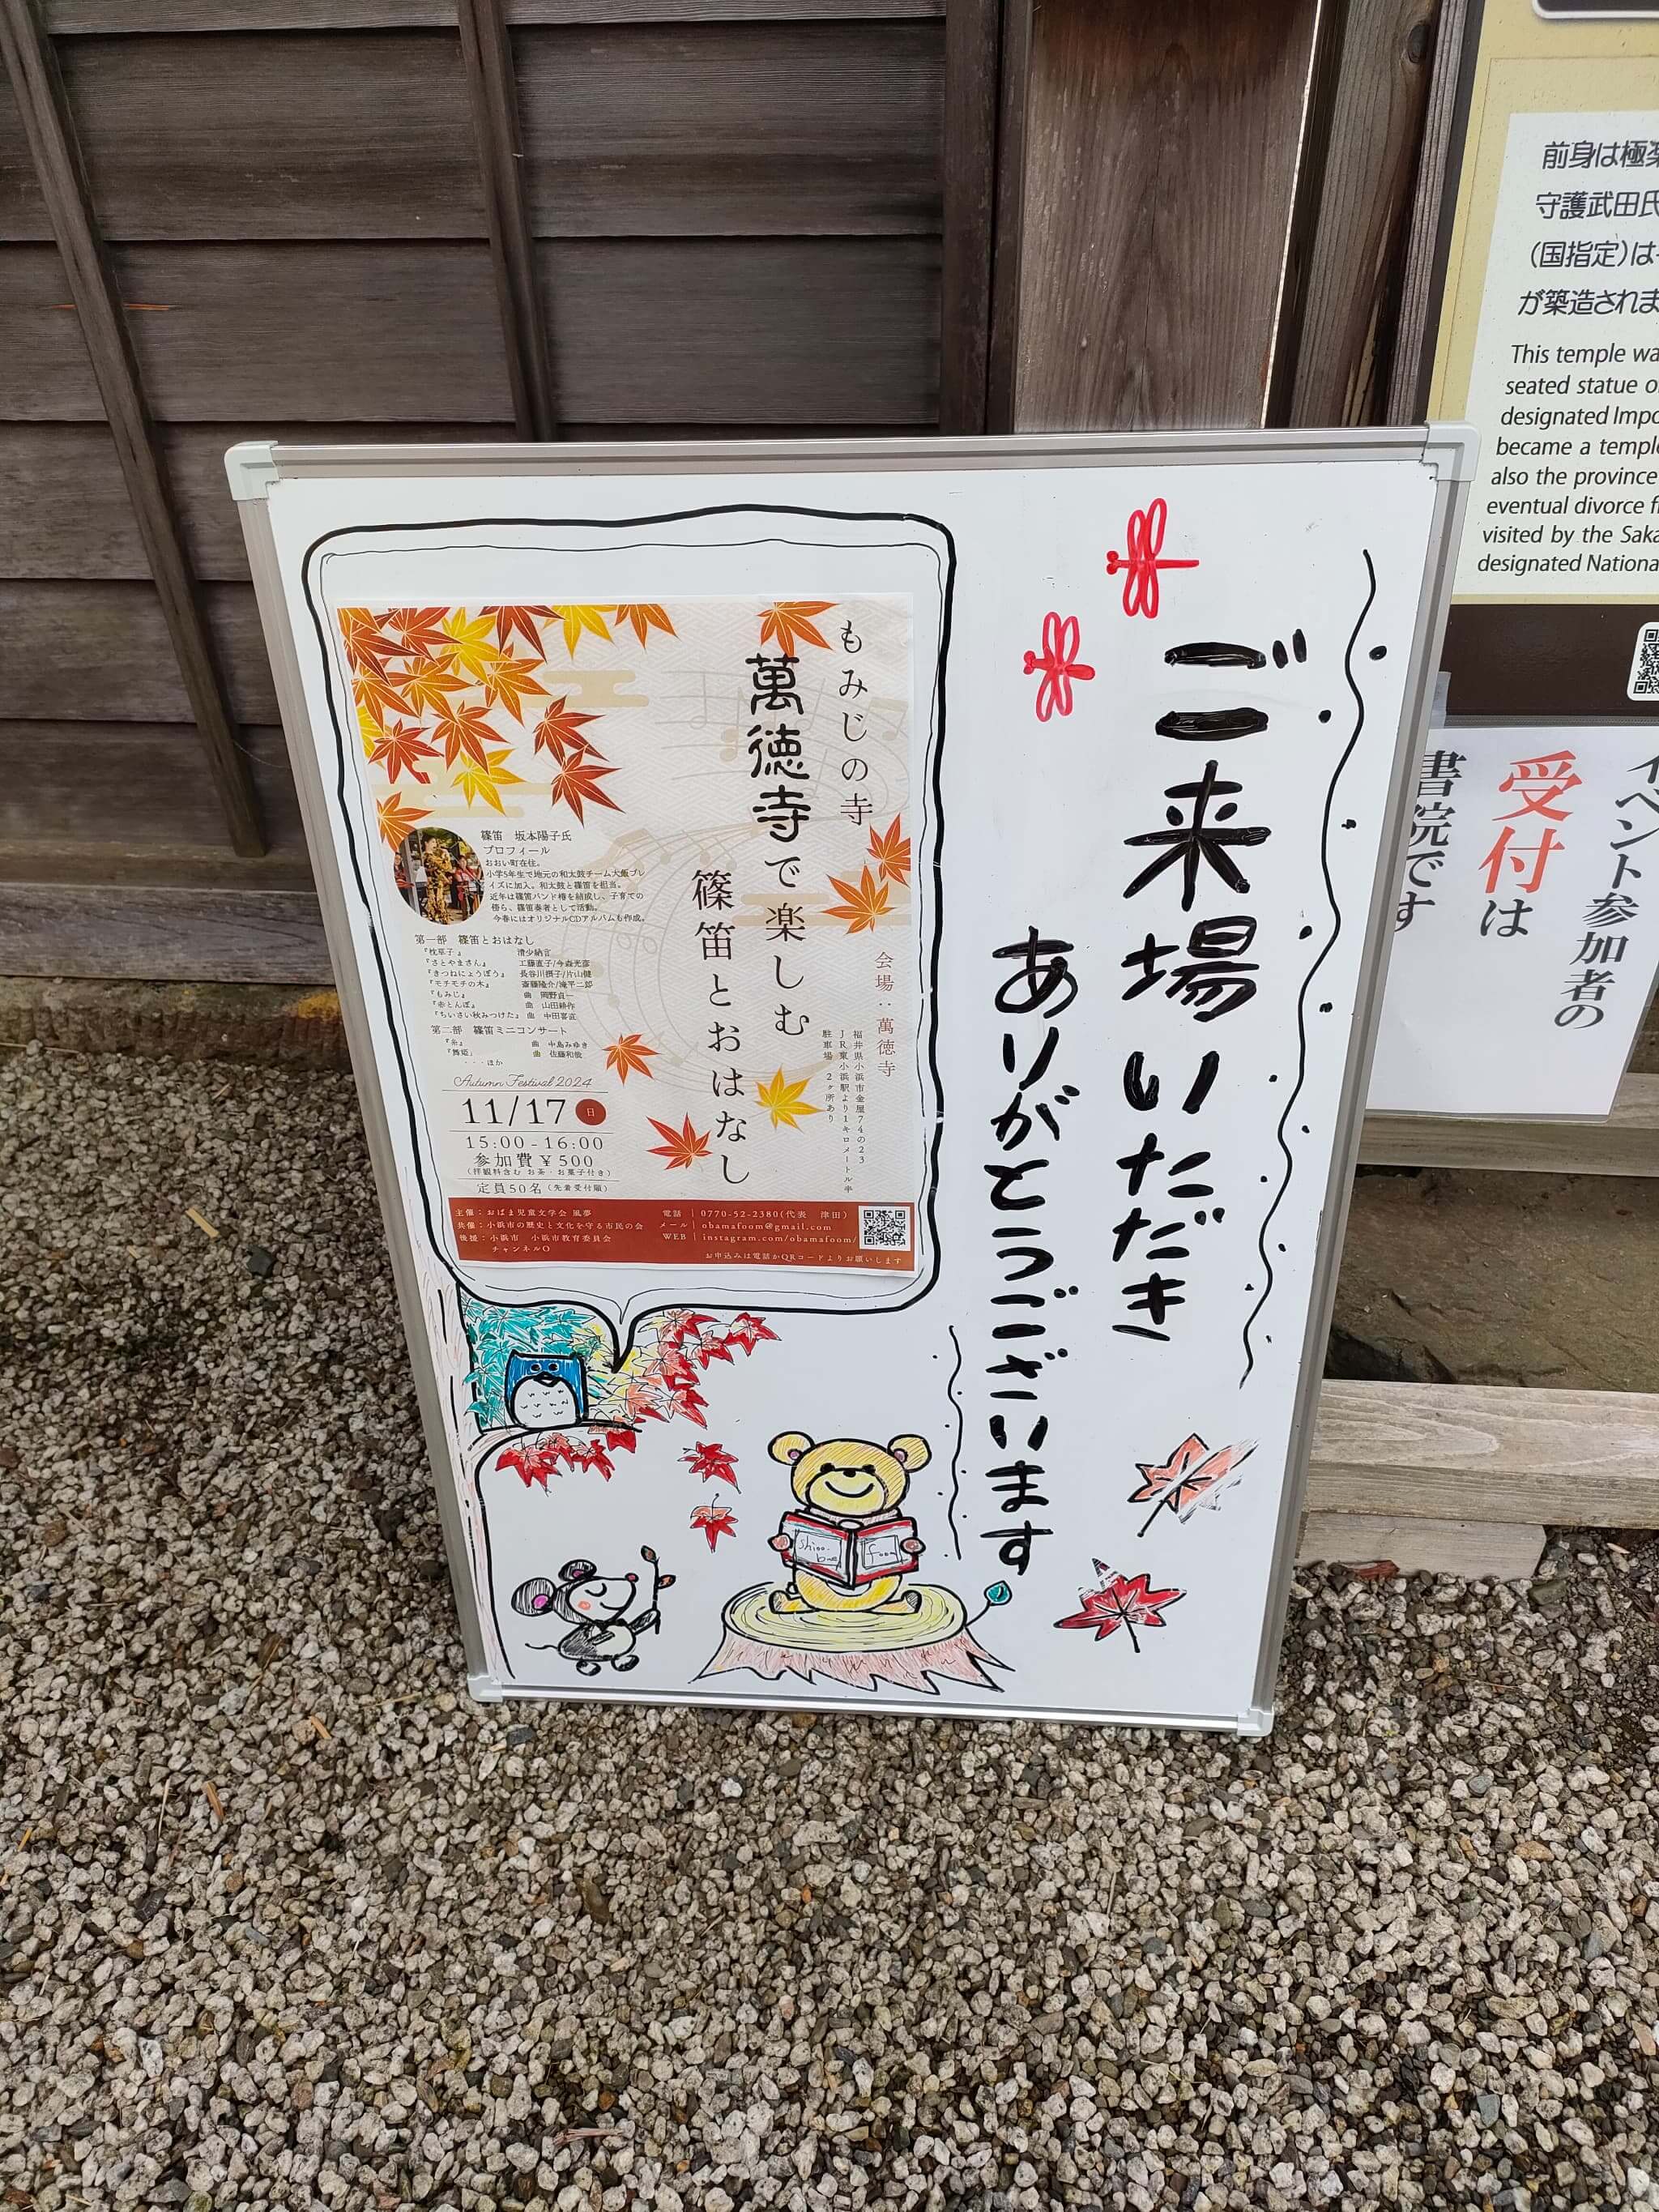 ご来場いただき
ありがとうございます
もみじの寺
萬徳寺で楽しむ
篠笛とおはなし
会場：萬徳寺
福井県小浜市金屋74の23
JR東小浜駅より1キロメートル半
駐車場 2ヶ所あり
篠笛 坂本陽子氏
プロフィール
おおい町在住。
小学5年生で地元の和太鼓チーム大飯ブレ
イズに加入。和太鼓と篠笛を担当。
近年は篠笛バンド楿を結成し、子育ての
傍ら、篠笛奏者として活動。
今春にはオリジナルCDアルバムも作成。
第一部 篠笛とおはなし
『枕草子』 清少納言
『さとやまさん』 工藤直子/今森光彦
『きつねにょうぼう』 長谷川摂子/片山健
『モチモチの木』 斎藤隆介/滝平二郎
『もみじ』 曲 岡野貞一
『赤とんぼ』 曲 山田耕作
『ちいさい秋みつけた』 曲 中田喜直
第二部 篠笛ミニコンサート
『糸』 曲 中島みゆき
『舞姫』 曲 佐藤和哉
・・・ほか
Autumn Festival 2024
11/17 日
15:00-16:00
参加費￥500
(拝観料含む お茶・お菓子付き)
定員50名 (先着受付順)
主催：おばま児童文学会 風夢
共催：小浜市の歴史と文化を守る市民の会
後援：小浜市 小浜市教育委員会
チャンネルO
電話 | 0770-52-2380(代表 津田)
メール | obamafoom@gmail.com
WEB | instagram.com/obamafoom/
お申込みは電話かQRコードよりお願いします
foom
前身は極楽
守護武田氏
(国指定)は
が築造されま
This temple wa
seated statue o
designated Impo
became a temple
also the province
eventual divorce f
visited by the Saka
designated Nationa
イベント参加者の
受付は
書院です